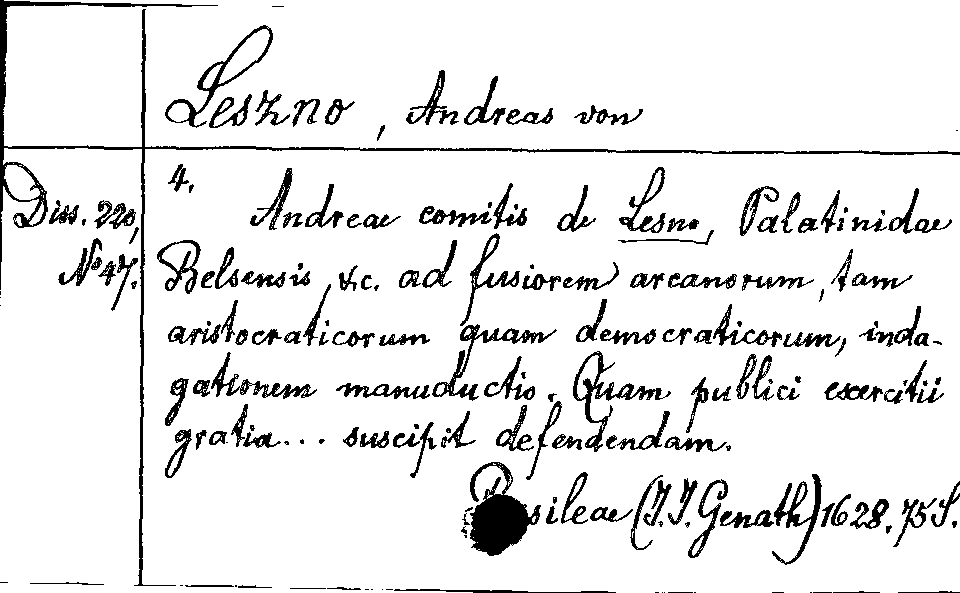 Leszno, Andreas von
4.
Diss. 220,
No 47.
Andreae comitis de Lesno, Palatinidae
Belsensis, &c. ad fusiorem arcanorum, tam
aristocraticorum quam democraticorum, inda-
gationem manuductio. Quam publici exercitii
gratia... suscipit defendendam.
Basileae (J.J. Genath) 1628. 75 S.